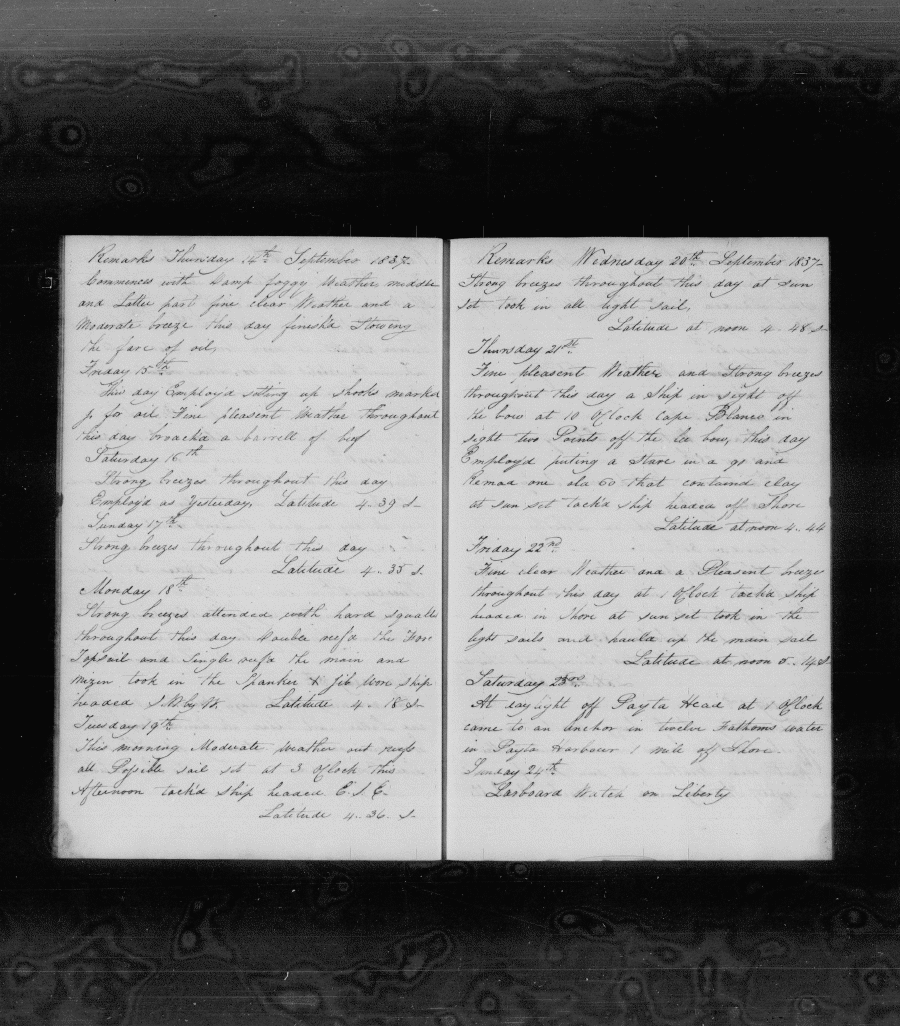 Remarks Thursday 14th September 1837
Commences with Damp foggy Weather middle
and Latter part fine clear Weather and a
Moderate breeze this day finesh'd Stowing
the fare of oil,
Friday 15th
This day Employ'd setting up Shooks marked
J. for oil Fine pleasent Weather throughout
this day broach'd a barrell of beef
Saturday 16th
Strong breezes throughout this day
Employ'd as Yesterday, Latitude 4.. 39 S
Sunday 17th
Strong breezes throughout this day
Latitude 4.. 35 S.
Monday 18th
Strong breezes attended with hard squalls
throughout this day Double reef'd the Fore
Topsail and Single reef'd the main and
mizen took in the Spanker & Jib Wore Ship
headed S.W. by W. Latitude 4.. 18 S
Tuesday 19th
This morning Moderate weather out reefs
all Possible sail set at 3 Oflock this
Afternoon tack'd Ship headed E. S. E.
Latitude 4.. 36.. S
Remarks Wednesday 20th September 1837
Strong breezes throughout this day at Sun
Set took in all light sail,
Latitude at noon 4.. 48 S
Thursday 21st
Fine pleasent Weather and Strong breezes
throughout this day a Ship in sight off
the bow at 10 Oflock Cape Blanco in
sight two Points off the le bow, this day
Employ'd puting a Stave in a gr and
Remad one old 60 that containd clay
at sun set tack'd ship headed off Shore
Latitude at noon 4.. 44
Friday 22nd
Fine clear Weather and a Pleasent breeze
throughout this day at 1 Oflock tack'd ship
headed in Shore at sun set took in the
light sails and hauld up the main sail
Latitude at noon 5.. 14 S
Saturday 23rd
At daylight off Payta Head at 1 Oflock
came to an anchor in twelve Fathoms water
in Payta Harbour 1 mile off Shore.
Sunday 24th
Larboard Watch on Liberty